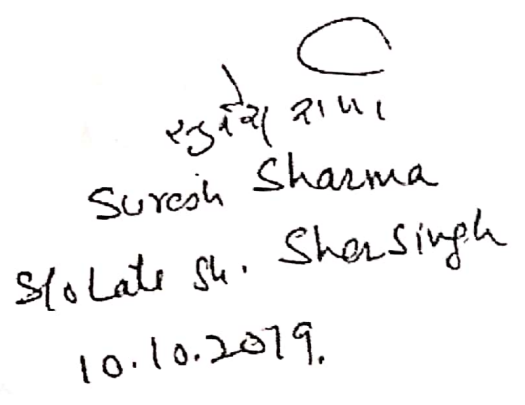 सुरेश शर्मा
Suresh Sharma
S/o Late Sh. Sher Singh
10.10.2019.